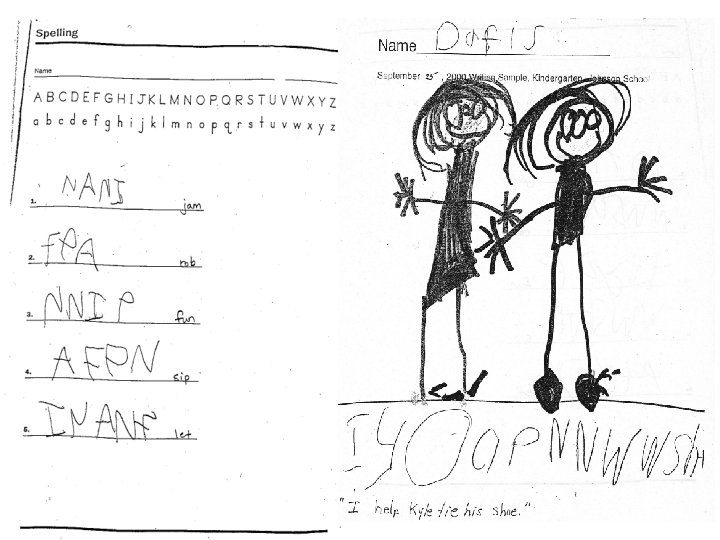 Spelling
Name
A B C D E F G H I J K L M N O P Q R S T U V W X Y Z
a b c d e f g h i j k l m n o p q r s t u v w x y z
1. NANI jam
2. FPA rob
3. NNIP fun
4. AFPN sip
5. INANF let
Name
September 25, 2000 Writing Sample, Kindergarten, Johnson School
"I help Kyle tie his shoe."